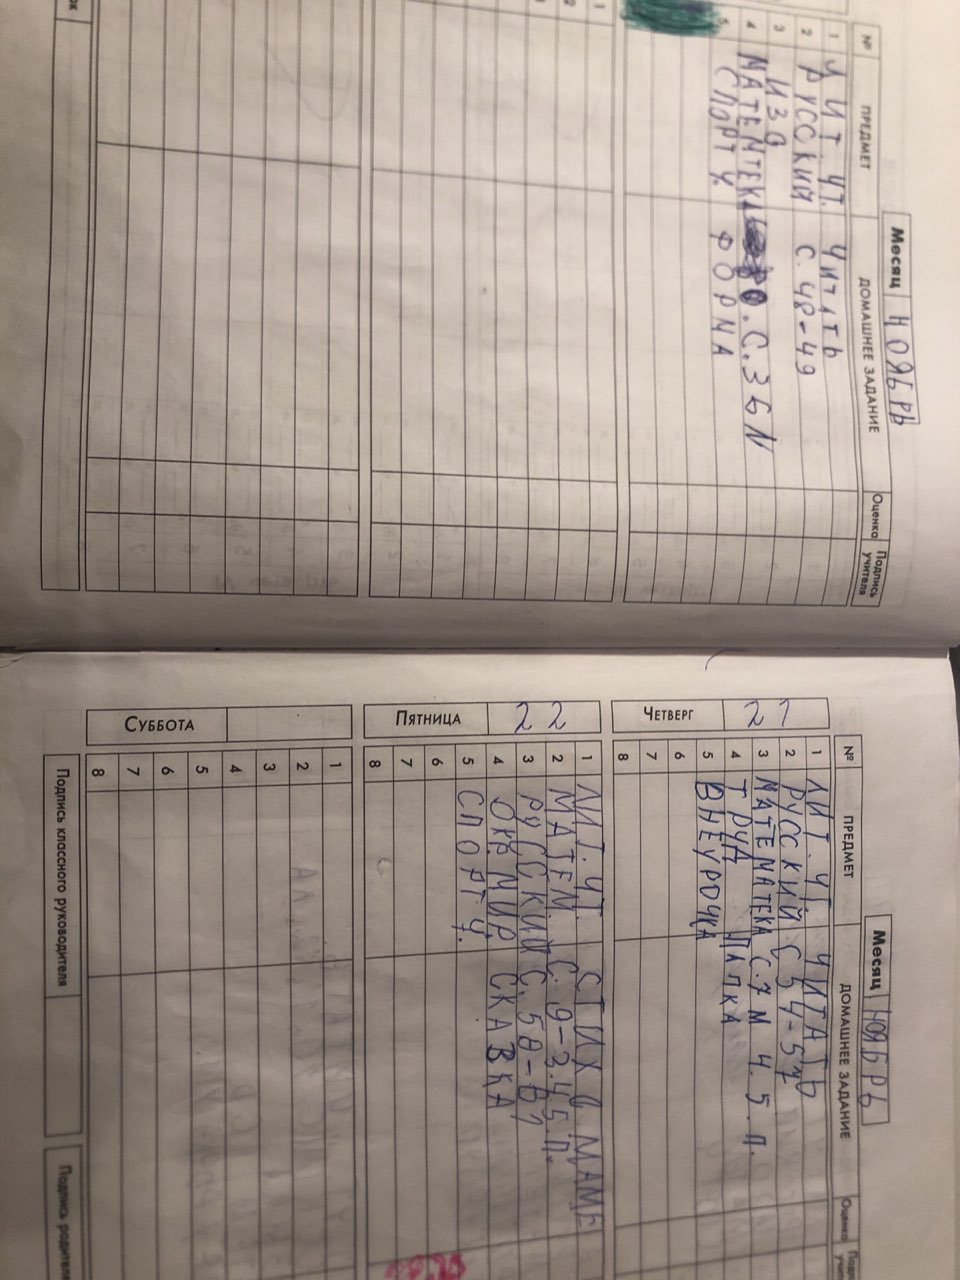 Месяц НОЯБРЬ
№ ПРЕДМЕТ ДОМАШНЕЕ ЗАДАНИЕ Оценка Подпись учителя
1 ЛИТ. ЧТ. ЧИТАТЬ
2 РУССКИЙ С. 48-49
3 ИЗО
4 МАТЕМТЕКА С. 36 N
5 СПОРТ Ч. ФОРМА
1
2
Месяц НОЯБРЬ
№ ПРЕДМЕТ ДОМАШНЕЕ ЗАДАНИЕ Оценка
ЧЕТВЕРГ 21
1 ЛИТ. ЧТ. ЧИТАТЬ
2 РУССКИЙ С 54-57
3 МАТЕМАТЕКА С. 7 М 4. 5. П.
4 ТРУД ПАПКА
5 ВНЕУРОЧКА
6
7
8
ПЯТНИЦА 22
1 ЛИТ. ЧТ. СТИХ О МАМЕ
2 МАТЕМ. С. 9-3.4.5. П.
3 РУССКИЙ С. 58-61
4 ОКР. МИР СКАЗКА
5 СПОРТ Ч.
6
7
8
СУББОТА
1
2
3
4
5
6
7
8
Подпись классного руководителя
Подпись родителя